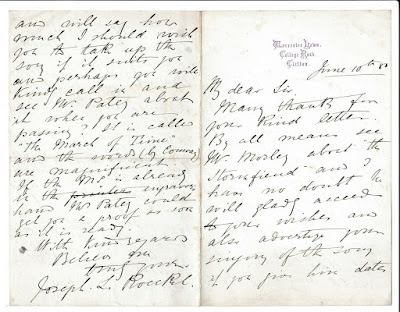 Worcester Lawn,
College Road,
Clifton.
June 10th 80
My dear Sir.
Many thanks for
your kind letter.
By all means see
Mr. Morley about the
"Cornfield" and I
have no doubt he
will gladly accede
to your wishes and
also advertise your
singing of the song
if you give him dates
and will say how
much I should wish
you to take up the
song if it suits you
and perhaps you will
kindly call in and
see Mr. Patey about
it when you are
passing. It is called
"The March of Time."
and the words (by Conway)
are magnificent.
If the M.S. is already
in the printer engravers
hand Mr Patey could
get you a proof as soon
as it is ready.
With kind regards
Believe me
truly yours
Joseph L. Roeckel.